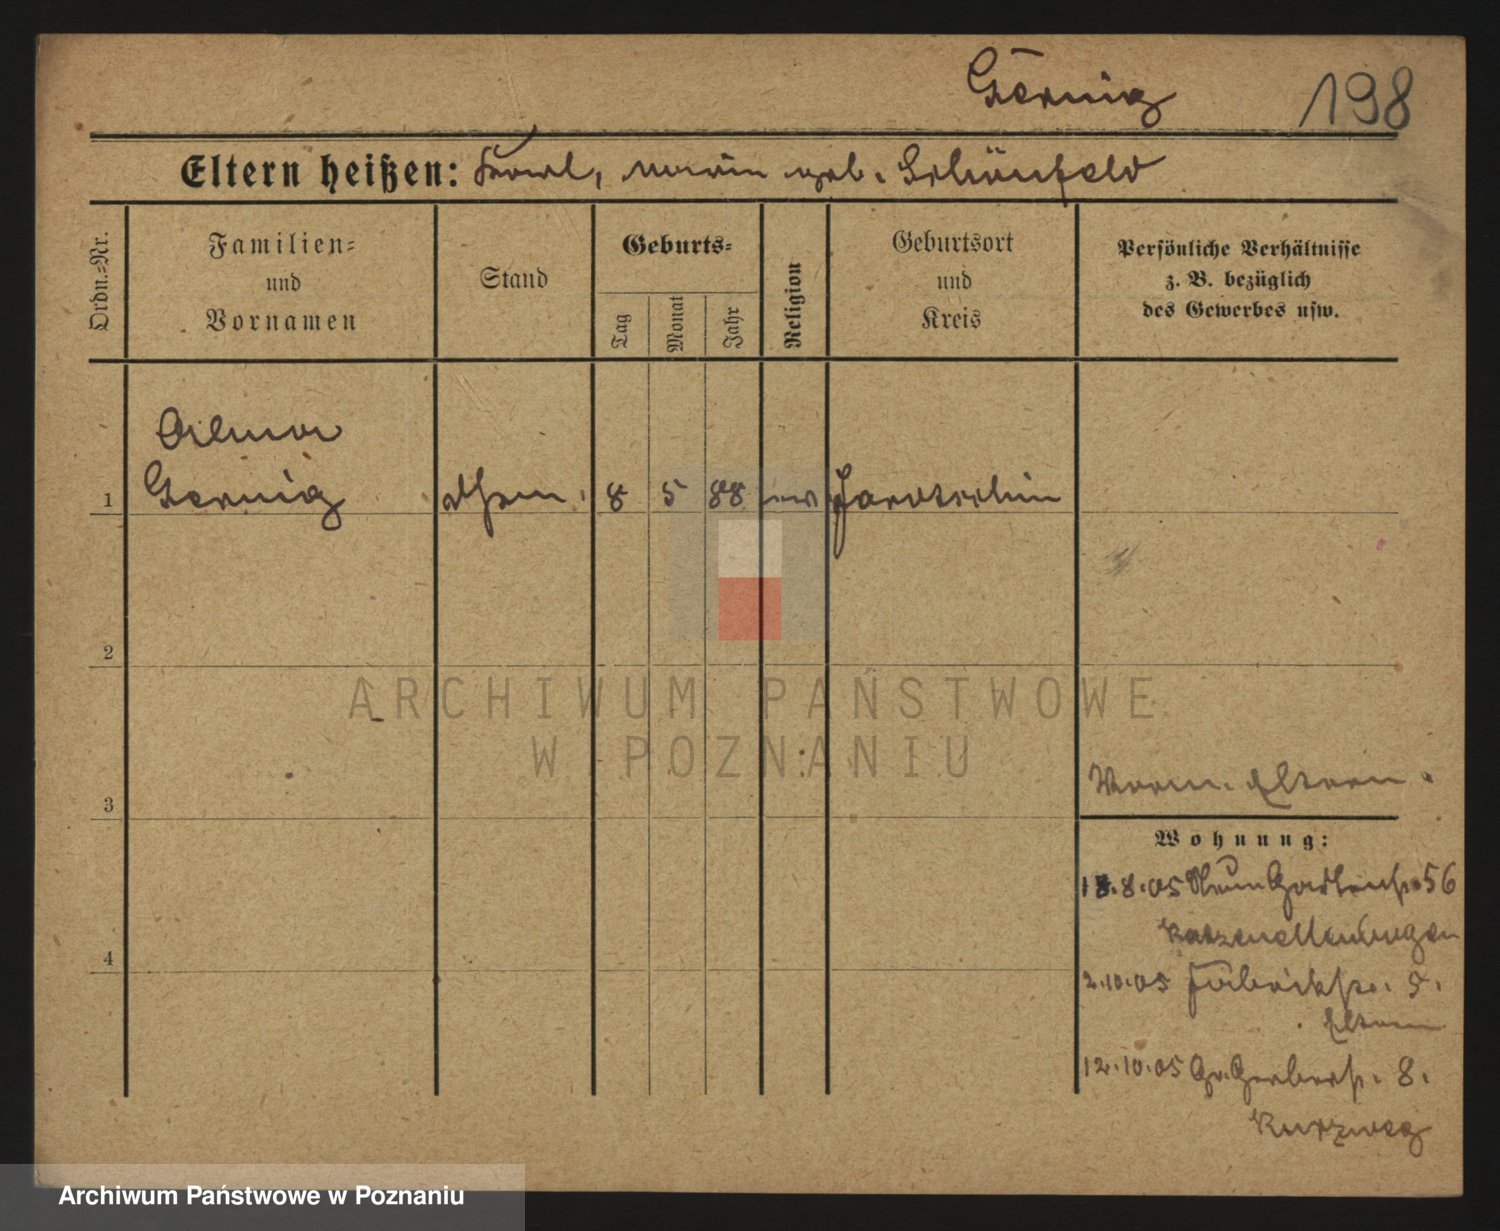 Gernig 198
Eltern heißen: Karl, Marie geb. Schönfeld
Ordn.=Nr.
Familien=
und
Vornamen
Stand
Geburts=
Tag
Monat
Jahr
Religion
Geburtsort
und
Kreis
Persönliche Verhältnisse
z. B. bezüglich
des Gewerbes usw.
1
Gernig 8 5 88 ev Jarotschin
2
ARCHIWUM PAŃSTWOWE
W POZNANIU
3
Eltern.
Wohnung:
4
18.8.05 Gartenstr. 56
Katzenellenbogen
2.10.05 Fabrikstr. 5.
Eltern
12.10.05 Gr. Gerberstr. 8.
Kurzweg
Archiwum Państwowe w Poznaniu